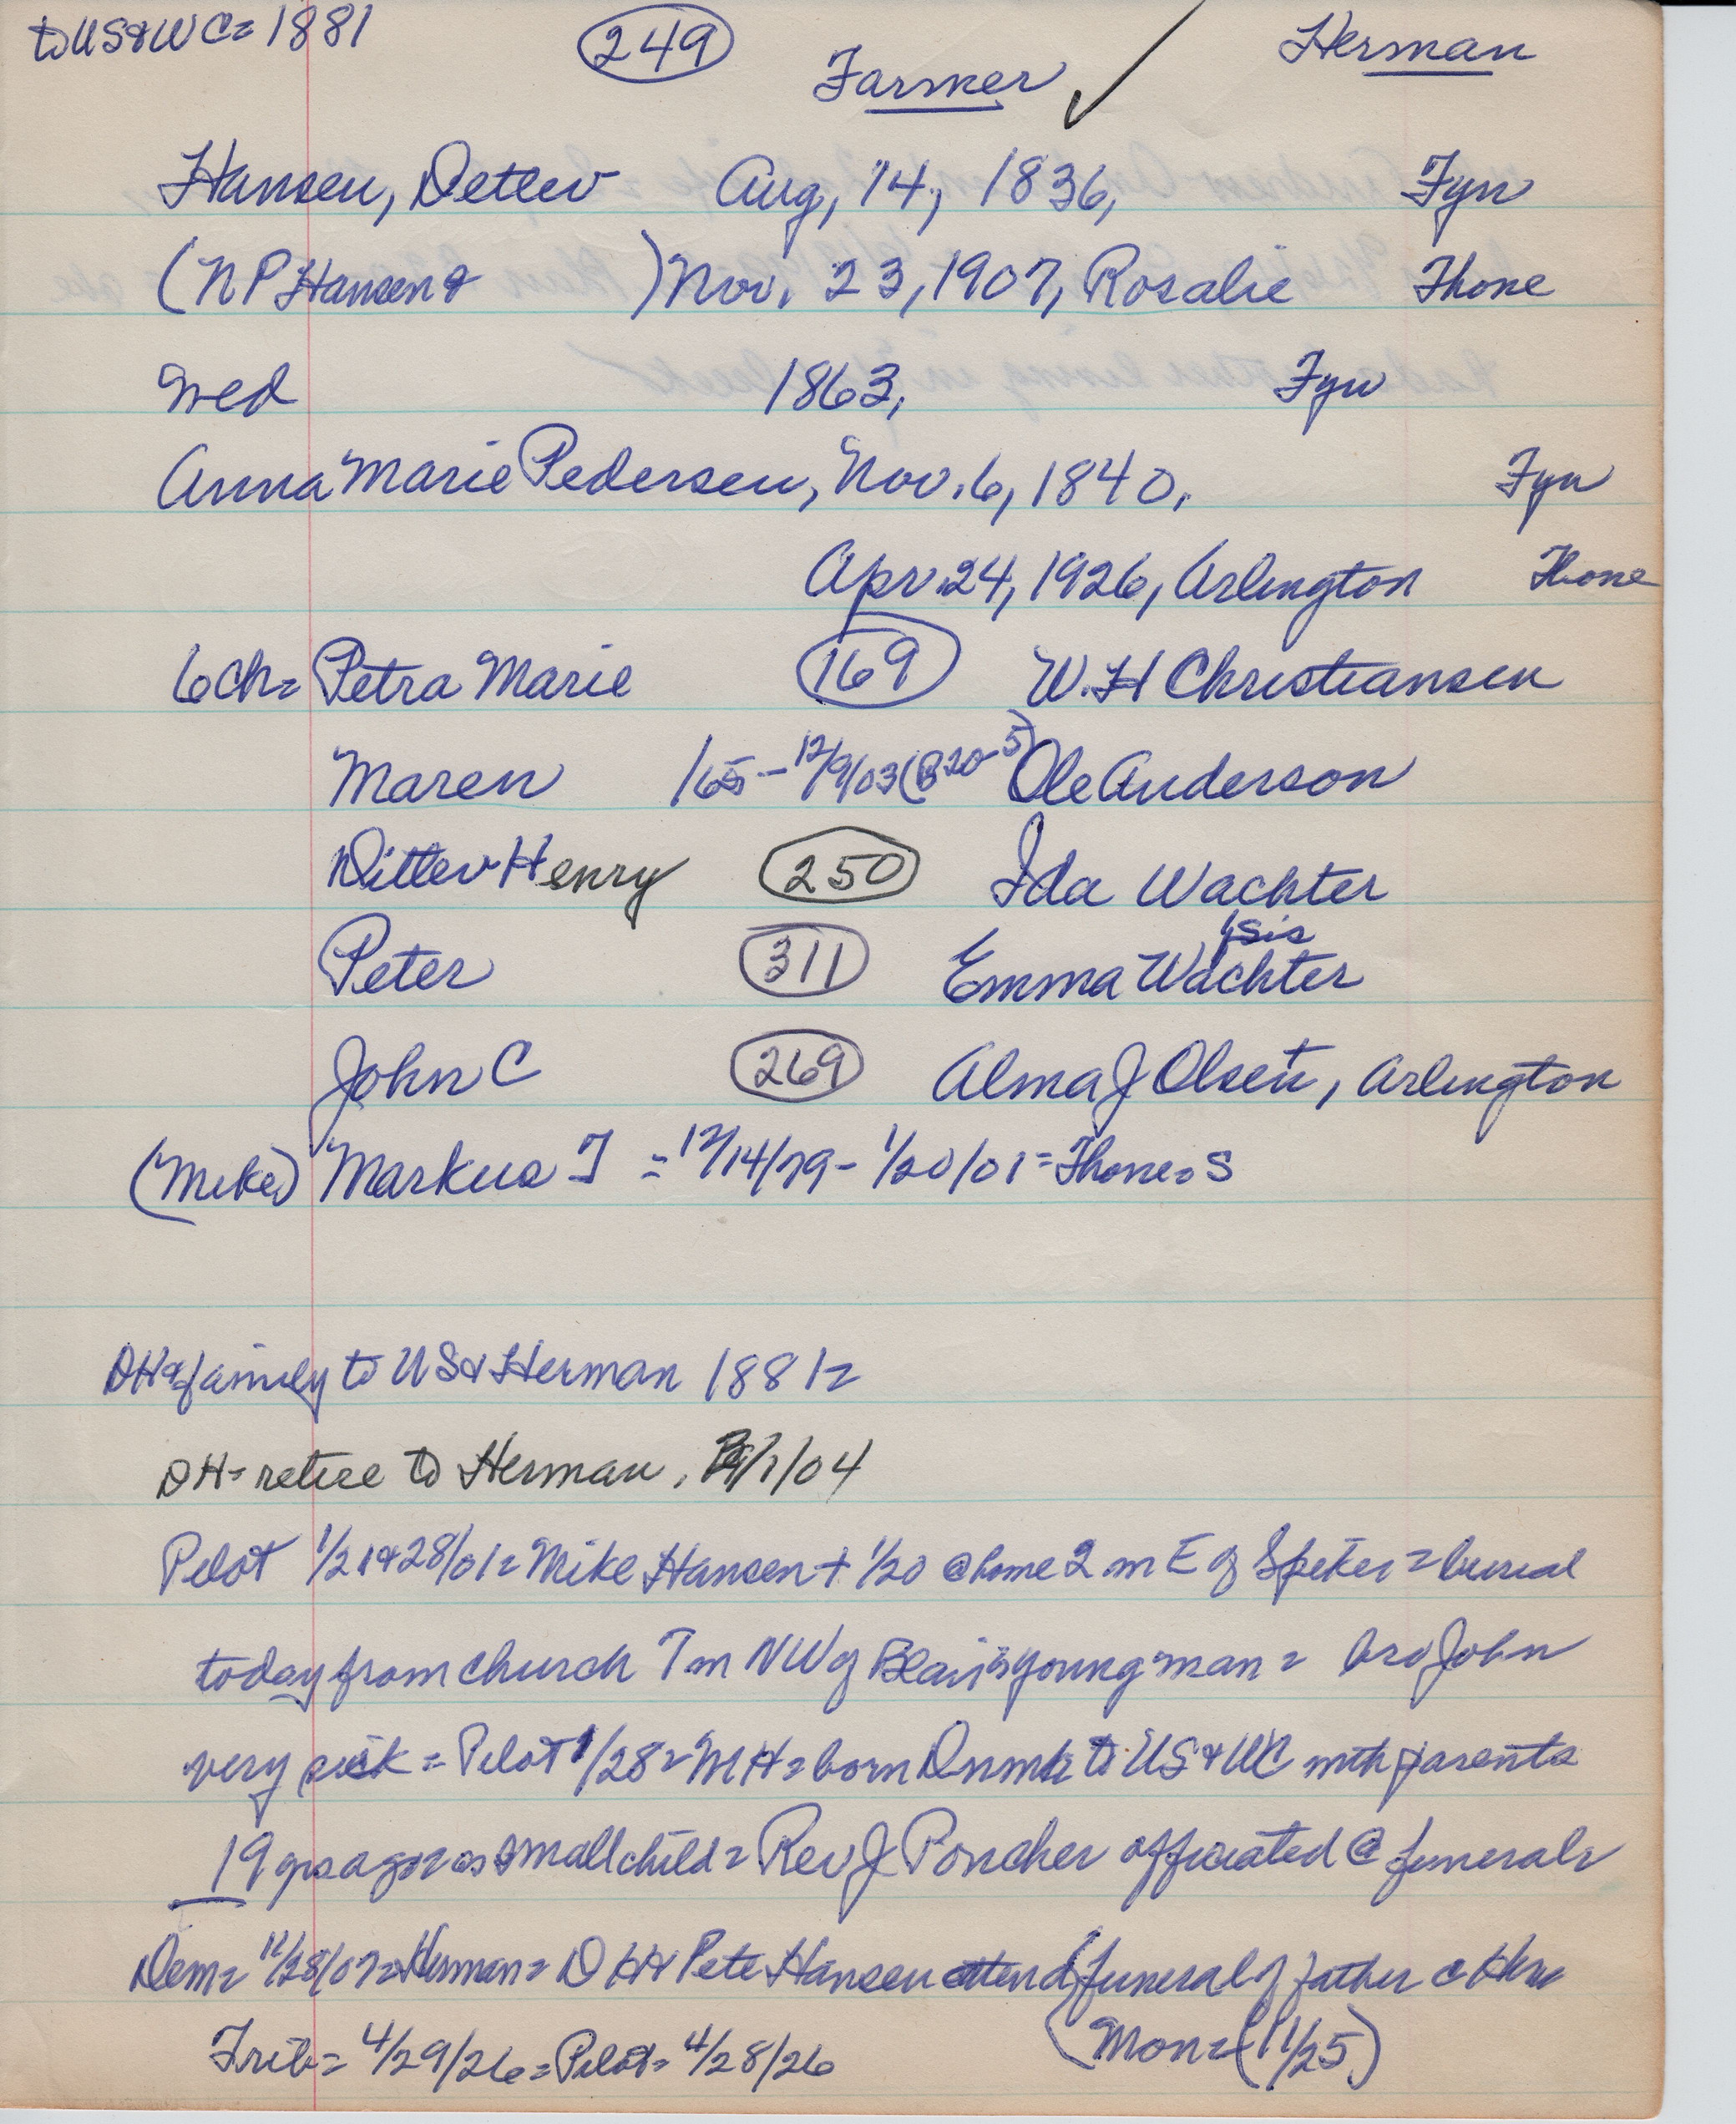 to US & WC = 1881 249 Herman
Farmer
Hansen, Detlev Aug, 14, 1836, Fyn
(N P Hansen & ) Nov. 23, 1907, Rosalie Thone
wed 1863, Fyn
Anna Marie Pedersen, Nov. 6, 1840, Fyn
Apr. 24, 1926, Arlington Thone
6 ch = Petra Marie 169 W. H Christiansen
Maren /65 - 12/9/03 (B20-5) Ole Anderson
Ditlev Henry 250 Ida Wachter
sis
Peter 311 Emma Wachter
John C 269 Alma J Olsen, Arlington
(Mike) Markus T = 12/14/79 - 1/20/01 = Thone = S
DH & family to US & Herman 1881 =
DH = retire to Herman, /1/04
Pilot 1/21 & 28/01 = Mike Hansen + 1/20 @ home 2 m E of Spiker = burial
today from church 7 m NW of Blair = young man = bro John
very sick = Pilot 1/28 = MH = born Dnmk to US & WC with parents
19 yrs ago = as small child = Rev J Poncher officiated @ funeral =
Dem = 11/28/07 = Herman = D H & Pete Hansen attend funeral of father
(Mon = (11/25)
Trib = 4/29/26 = Pilot = 4/28/26